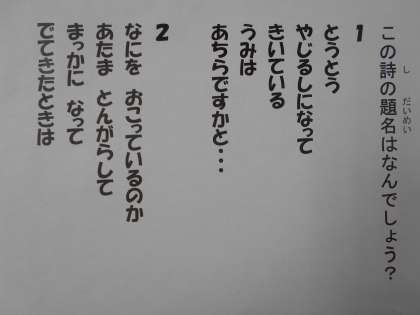 この詩の題名はなんでしょう？
し だいめい
1
とうとう
やじるしになって
きいている
うみは
あちらですかと・・・
2
なにを おこっているのか
あたま とんがらして
まっかに なって
でてきたときは